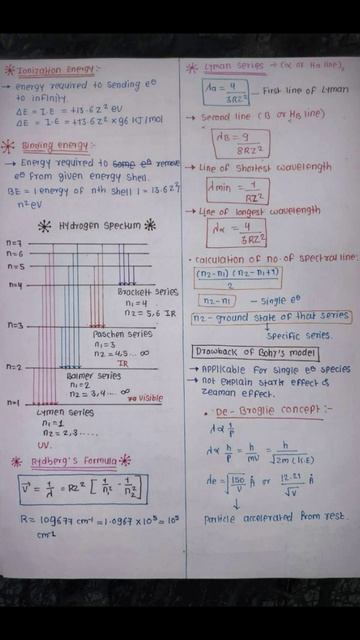 * Ionization Energy :-
→ energy required to sending e⊖
to infinity.
ΔE = I.E = +13.6 Z² eV
ΔE = I.E = +13.6 Z² x 96 KJ/mol
* Binding energy :-
→ Energy required to some e⊖ remove
e⊖ from given energy shell.
BE = | energy of nth shell | = 13.6Z²/
n² eV
* Hydrogen Spectum *
n=7
n=6
n=5
n=4
Brackett series
n₁ = 4
n₂ = 5,6 IR
n=3
Paschen series
n₁ = 3
n₂ = 4,5... ∞
IR
n=2
Balmer series
n₁ = 2
n₂ = 3,4... ∞
visible
n=1
Lymen series
n₁ = 1
n₂ = 2,3.....
UV.
* Rydberg's Formula *
V̅ = 1/λ = RZ² [1/n₁² - 1/n₂²]
R = 109677 cm⁻¹ = 1.0967 x 10⁵ = 10⁵
cm⁻¹
* Lyman series → (α or Hα line)
λα = 4/3RZ² — First line of Lyman
→ Second line (B or HB line)
λB = 9/8RZ²
→ Line of shortest wavelength
λmin = 1/RZ²
→ Line of longest wavelength
λα = 4/3RZ²
• Calculation of no. of spectral line:
(n2-n1)(n2-n1+1)/2
n2-n1 — single e⊖
n2 - ground state of that series
↓
specific series.
Drawback of Bohr's model
→ Applicable for single e⊖ species
→ not explain stark effect &
zeaman effect.
• De-Broglie concept :-
λ α 1/P
λ α h/P = h/mv = h/√2m(K.E)
de = √150/V Å or 12.27/√V Å
↓
Particle accelerated from rest.